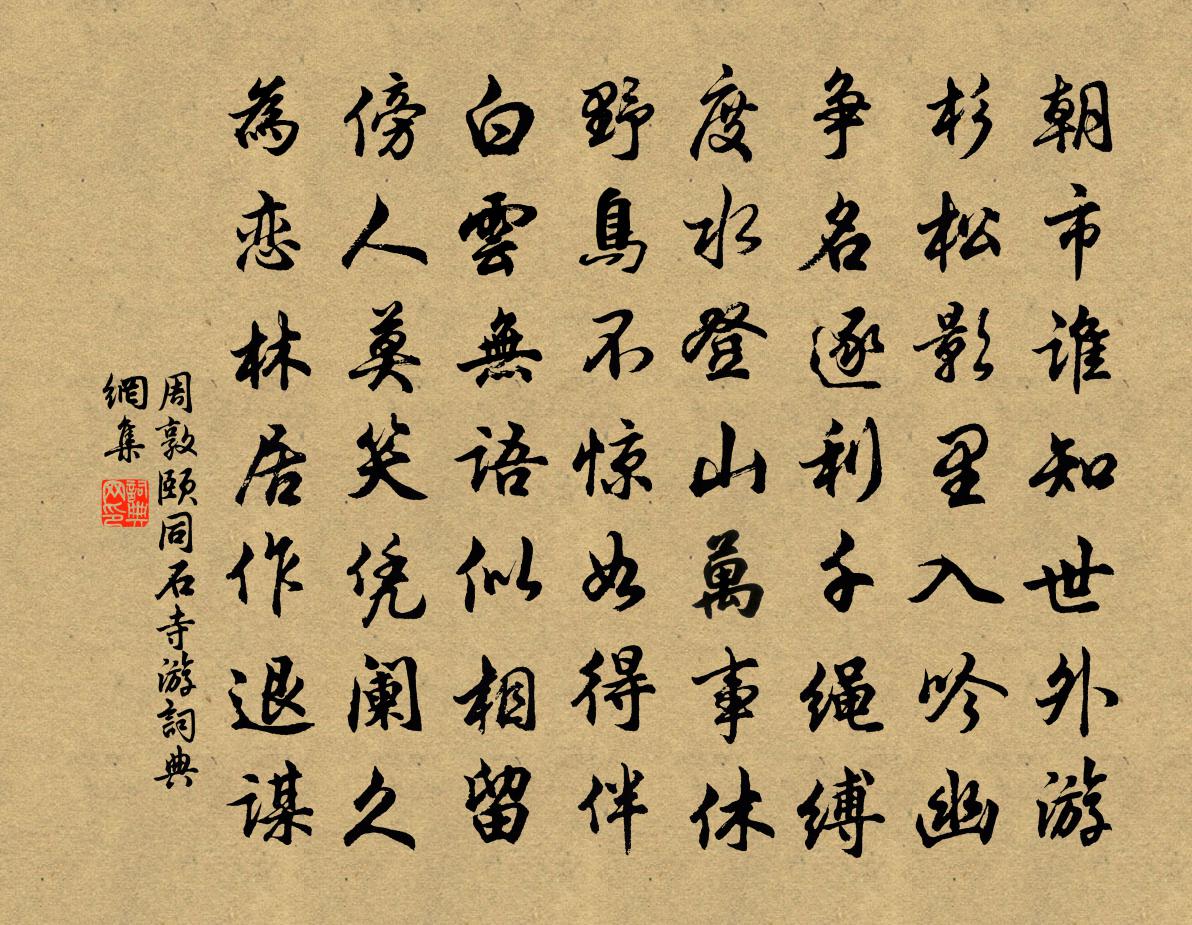 朝市谁知世外游
杉松影里入吟幽
争名逐利千绳缚
度水登山萬事休
野鳥不惊如得伴
白雲無語似相留
傍人莫笑凭阑久
為恋林居作退谋
周敦颐同石寺游詞典
網集
詞典
网印